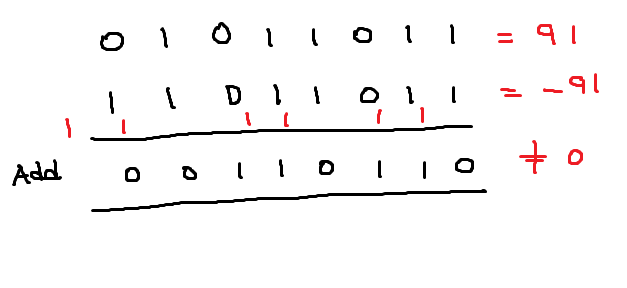 0 1 0 1 1 0 1 1 = 91
1 1 0 1 1 0 1 1 = -91
1 1 1 1 1 1
Add 0 0 1 1 0 1 1 0 ≠ 0